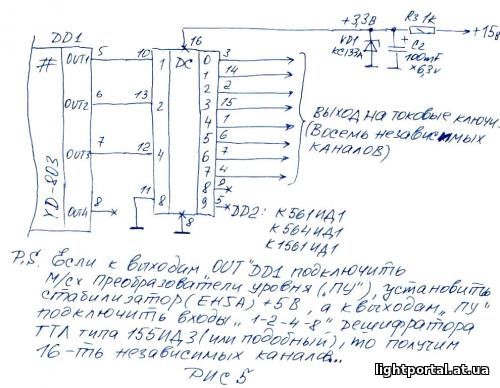 +3,3В R3 1к +15в
DD1 16 VD1 КС133А C2 100mF ×6,3v
# OUT1 5 10 1 DC 0 3
1 14
OUT2 6 13 2 2 2
3 15
4 1
OUT3 7 12 4 5 6
6 7
7 4
YD-803 OUT4 8 11 8 8 9
9 5
8
ВЫХОД НА ТОКОВЫЕ КЛЮЧИ.
(ВОСЕМЬ НЕЗАВИСИМЫХ
КАНАЛОВ)
DD2: К561ИД1
К564ИД1
К1561ИД1
P.S. Если к выходам „OUT" DD1 подключить
м/сх преобразователи уровня („ПУ"), установить
стабилизатор (ЕН5А) +5В, а к выходам „ПУ"
подключить входы „1-2-4-8" дешифратора
ТТЛ типа 155ИД3 (или подобный), то получим
16-ть независимых каналов...
РИС 5
lightportal.at.ua